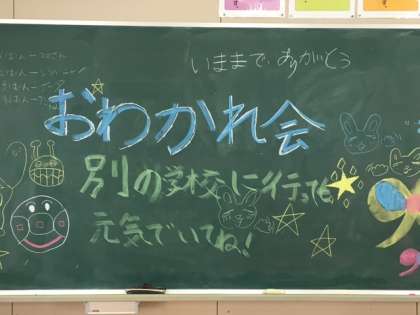 いままで、ありがとう
おわかれ会
別の学校に行っても
元気でいてね!